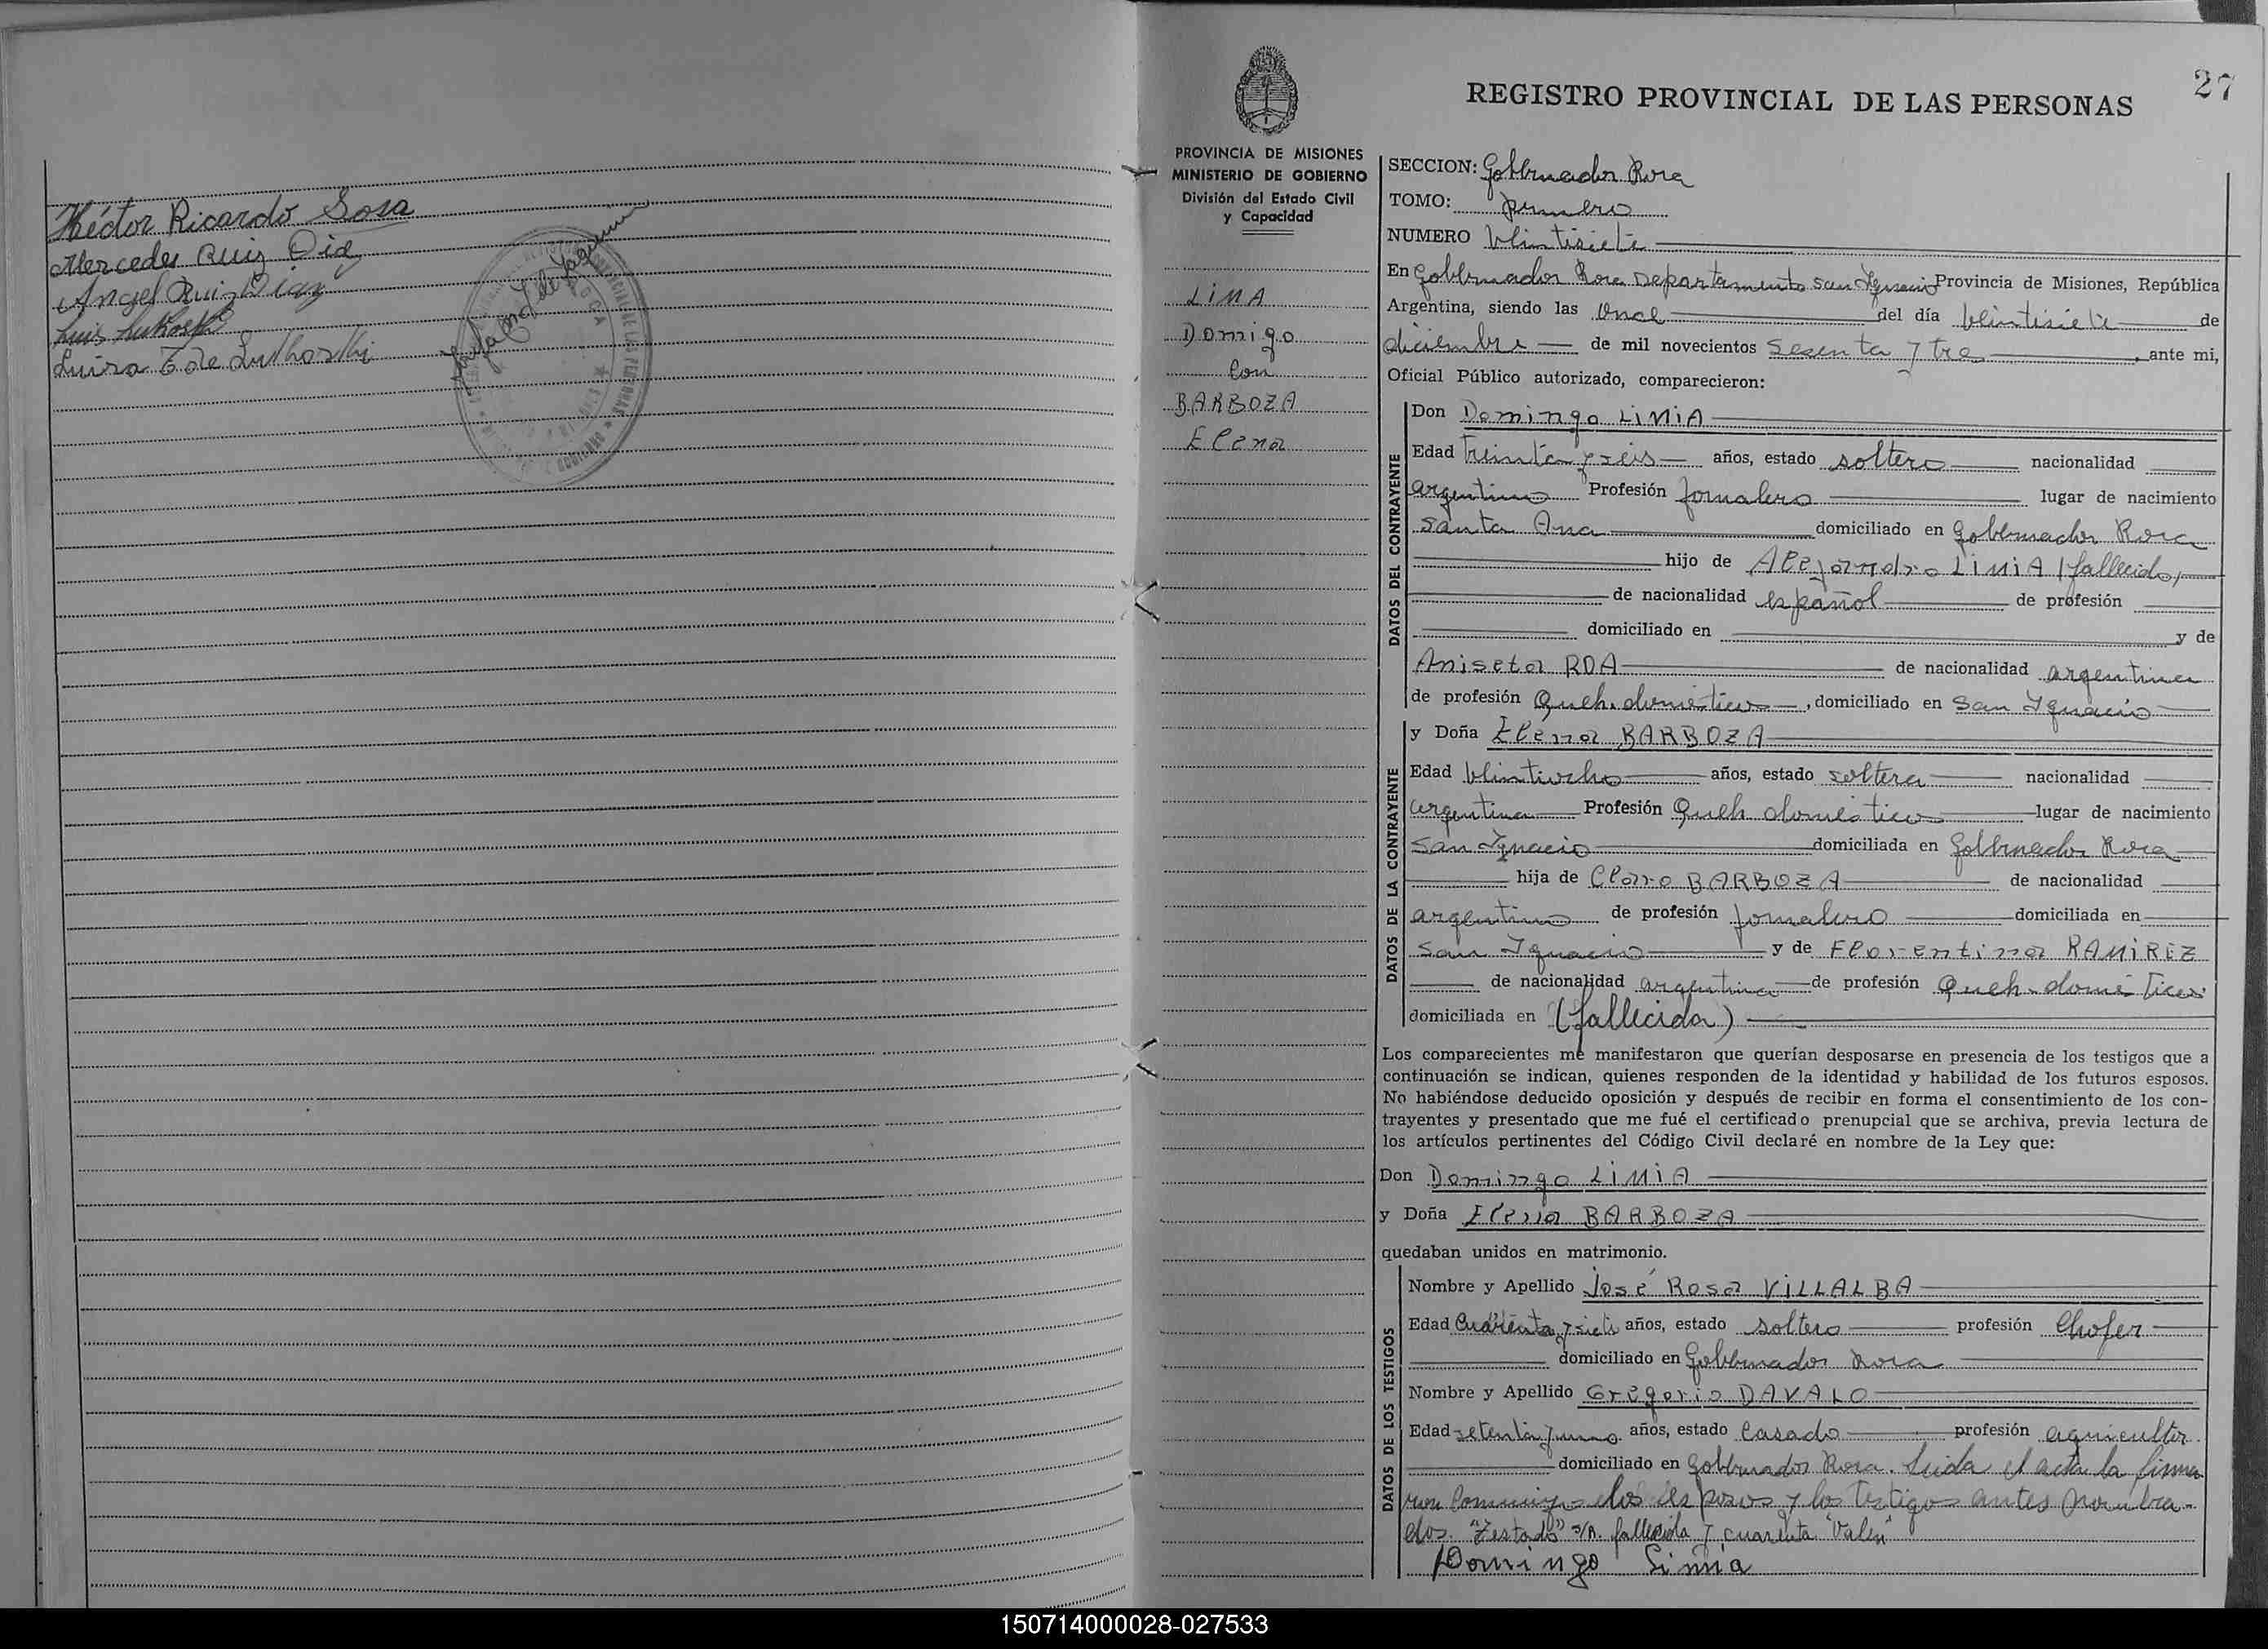 Héctor Ricardo Sosa
Mercedes Ruiz Dia
Angel Ruiz Diaz
Luis
Luisa
27
REGISTRO PROVINCIAL DE LAS PERSONAS
PROVINCIA DE MISIONES
MINISTERIO DE GOBIERNO
División del Estado Civil
y Capacidad
LIMA
Domigo
Con
BARBOZA
Elena
SECCION: Gobernador Roca
TOMO: primero
NUMERO Veintisiete
En Gobernador Roca Departamento San Ignacio Provincia de Misiones, República
Argentina, siendo las Once del día Veintisiete de
diciembre de mil novecientos Sesenta y tres, ante mi,
Oficial Público autorizado, comparecieron:
DATOS DEL CONTRAYENTE
Don Domingo LIMIA
Edad treinta y seis años, estado soltero nacionalidad
argentino Profesión Jornalero lugar de nacimiento
Santa Ana domiciliado en Gobernador Roca
hijo de Alejandro LIMIA (fallecido)
de nacionalidad español de profesión
domiciliado en y de
Aniseta ROA de nacionalidad argentina
de profesión Queh. domésticos, domiciliado en San Ignacio
DATOS DE LA CONTRAYENTE
y Doña Elena BARBOZA
Edad Veintiocho años, estado soltera nacionalidad
argentina Profesión Queh domésticos lugar de nacimiento
San Ignacio domiciliada en Gobernador Roca
hija de Claro BARBOZA de nacionalidad
argentino de profesión Jornalero domiciliada en
San Ignacio y de Florentina RAMIREZ
de nacionalidad argentina de profesión Queh. domésticos
domiciliada en (fallecida)
Los comparecientes me manifestaron que querían desposarse en presencia de los testigos que a
continuación se indican, quienes responden de la identidad y habilidad de los futuros esposos.
No habiéndose deducido oposición y después de recibir en forma el consentimiento de los con-
trayentes y presentado que me fué el certificado prenupcial que se archiva, previa lectura de
los artículos pertinentes del Código Civil declaré en nombre de la Ley que:
Don Domingo LIMIA
y Doña Elena BARBOZA
quedaban unidos en matrimonio.
DATOS DE LOS TESTIGOS
Nombre y Apellido José Rosa VILLALBA
Edad Cuarenta y siete años, estado soltero profesión Chofer
domiciliado en Gobernador Roca
Nombre y Apellido Gregorio DAVALO
Edad setenta y uno años, estado Casado profesión agricultor
domiciliado en Gobernador Roca. Leida el acta la firma
ron conmigo los esposos y los testigos antes nombra-
dos. "Testado" s/r. fallecida y cuarenta "Valen"
Domingo Limia
150714000028-027533